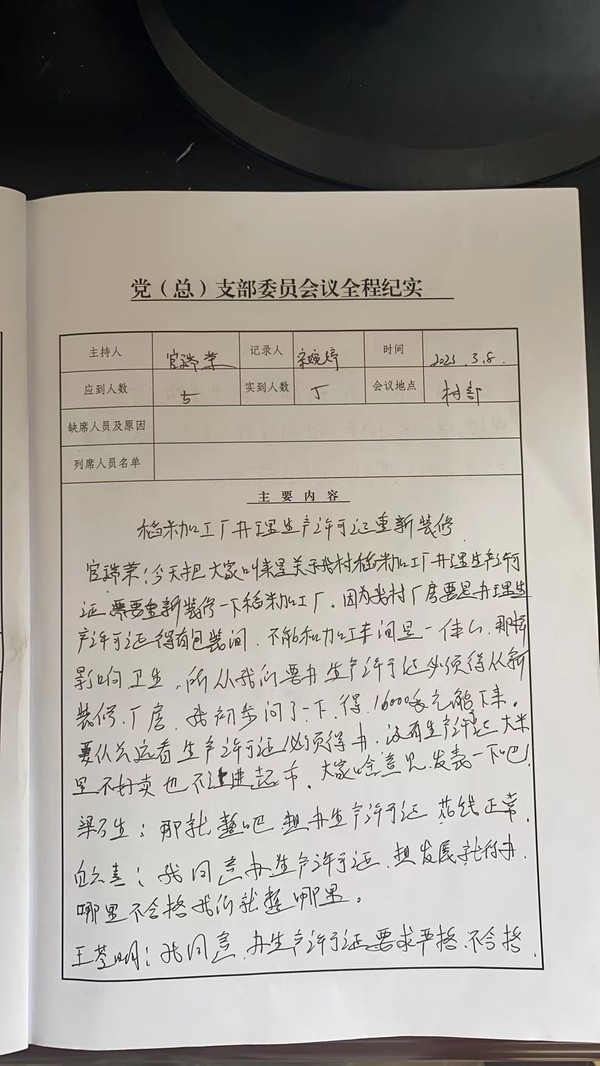 党（总）支部委员会议全程纪实
主持人 官瑞荣 记录人 宋婉婷 时间 2025.3.8.
应到人数 5 实到人数 5 会议地点 村部
缺席人员及原因
列席人员名单
主要内容
稻米加工厂办理生产许可证重新装修
官瑞荣：今天把大家叫来是关于我村稻米加工厂办理生产许可
证需要重新装修一下稻米加工厂。因为我村厂房要是办理生
产许可证得有包装间，不能和加工车间是一体的，那样
影响卫生，所以我们要办生产许可证必须得从新
装修厂房，我初步问了一下，得16000多元能下来。
要从长远看生产许可证必须得办，没有生产许可证大米
是不好卖也不让进超市，大家啥意见发表一下吧！
：那就整吧，想办生产许可证花钱正常。
：我同意办生产许可证，想发展就得办，
哪里不合格我们就整哪里。
：我同意，办生产许可证要求严格，不合格，